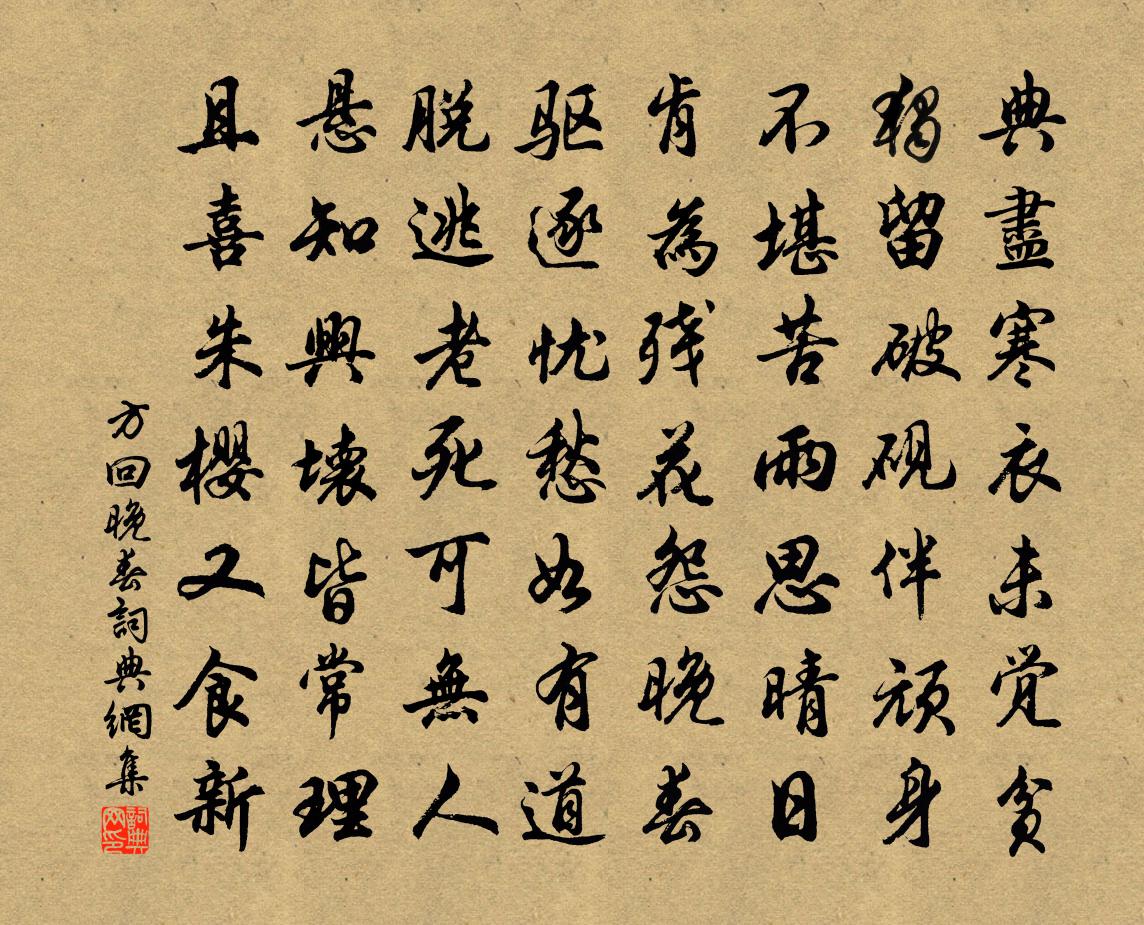 典盡寒衣未觉貧
獨留破砚伴頑身
不堪苦雨思晴日
肯為残花怨晚春
驱逐忧愁如有道
脱逃老死可無人
悬知興壊皆常理
且喜朱櫻又食新
方回晚春詞典網集
詞典网印